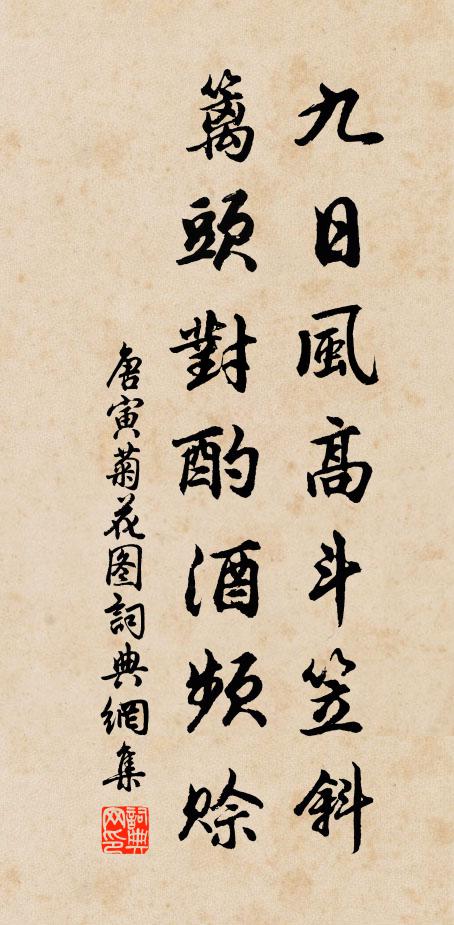 九日風高斗笠斜
篱頭對酌酒頻賒
唐寅菊花图詞典網集
詞典网印